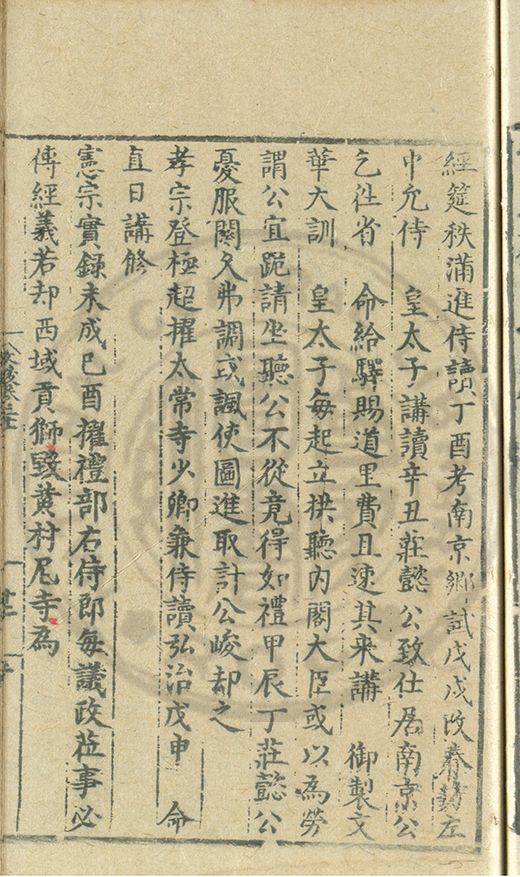 經筵秩滿進侍讀丁酉考南京鄉試戊戌改春坊左
中允侍　皇太子講讀辛丑莊懿公致仕居南京公
乞徃省　命給驛賜道里費且速其来講　御製文
華大訓　皇太子每起立拱聽內閣大臣或以為勞
謂公宜跪請坐聽公不從竟得如禮甲辰丁莊懿公
憂服闋乆弗調或諷使圖進取計公峻却之
孝宗登極超擢太常寺少卿兼侍讀弘治戊申　命
直日講修
憲宗實録未成己酉擢禮部右侍郎每議政蒞事必
傅經義若却西域貢獅毀黄村尼寺為